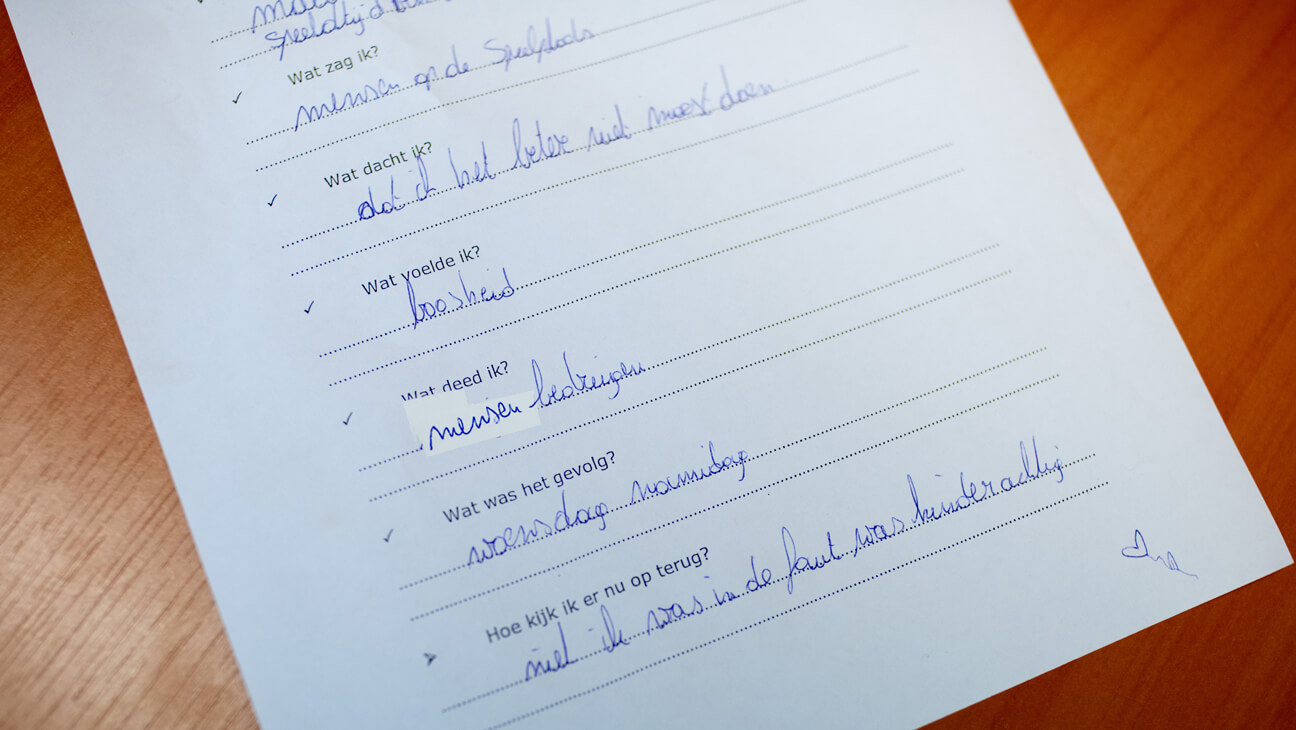 speeltijd
Wat zag ik?
mensen op de speelplaats
Wat dacht ik?
dat ik het beter niet moest doen
Wat voelde ik?
boosheid
Wat deed ik?
mensen bedreigen
Wat was het gevolg?
woensdag namidag
Hoe kijk ik er nu op terug?
niet ik was in de fout was kinderachtig